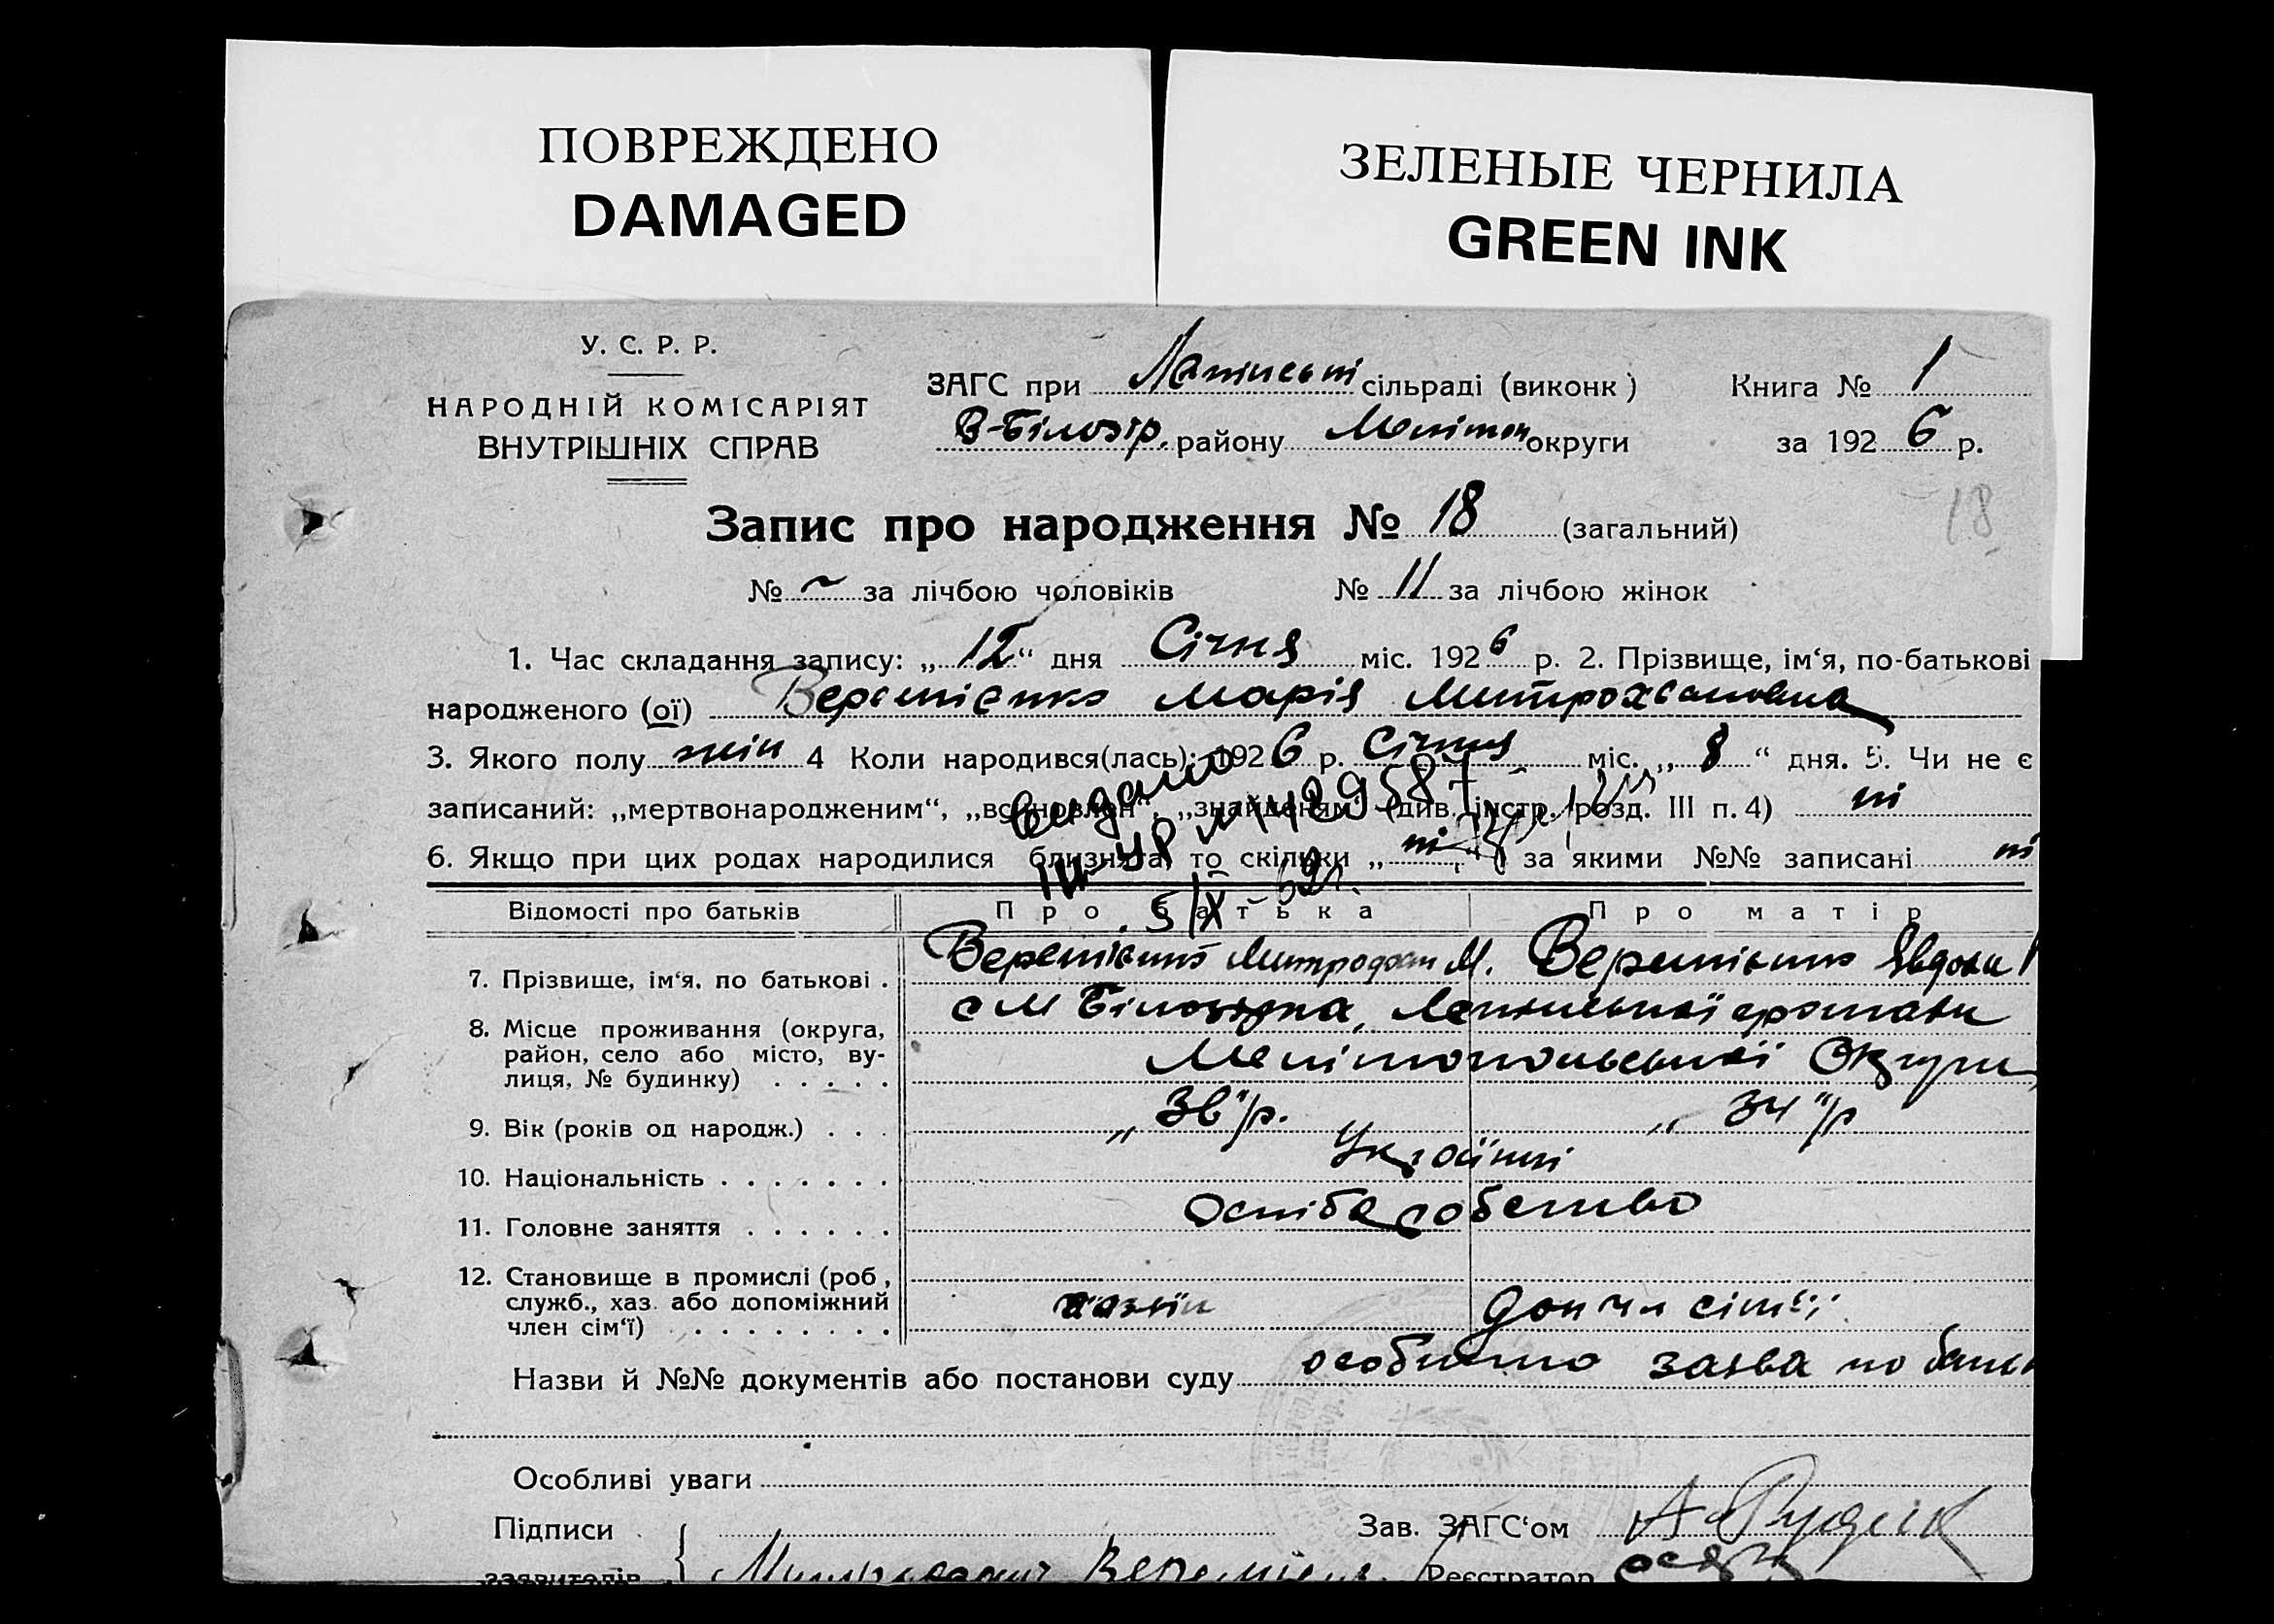 ПОВРЕЖДЕНО
DAMAGED
ЗЕЛЕНЫЕ ЧЕРНИЛА
GREEN INK
У. С. Р. Р.
НАРОДНІЙ КОМІСАРІЯТ
ВНУТРІШНІХ СПРАВ
ЗАГС при сільраді (виконк )
В-Білозір. району Мелітоп округи
Книга № 1
за 1926 р.
18
Запис про народження № 18 (загальний)
№ ~ за лічбою чоловіків № 11 за лічбою жінок
1. Час складання запису: „12“ дня Січня міс. 1926 р. 2. Прізвище, ім‘я, по-батькові
народженого (ої) Марія
3. Якого полу жін 4 Коли народився(лась): 1926 р. Січня міс. „8“ дня. 5. Чи не є
записаний: „мертвонародженим“, „всиновлен“, „знайденям“ (див. інстр. розд. III п. 4) ні
6. Якщо при цих родах народилися близнята, то скільки „ні“ за якими №№ записані ні
видано
5/IX-62р.
Відомості про батьків Про батька Про матір
7. Прізвище, ім‘я, по батькові . Митрофан М.
8. Місце проживання (округа,
район, село або місто, ву-
лиця, № будинку) . . . . .
с М Білозірка,
Мелітопольської Округи
9. Вік (років од народж.) . . . „36“/р. „34“/р
10. Національність . . . . . . . Українці
11. Головне заняття . . . . . .
12. Становище в промислі (роб ,
служб., хаз. або допоміжний
член сім‘ї) . . . . . . . . .
хазяїн
Назви й №№ документів або постанови суду заява
Особливі уваги
Підписи
заявителів
Зав. ЗАГС‘ом
Реєстратор